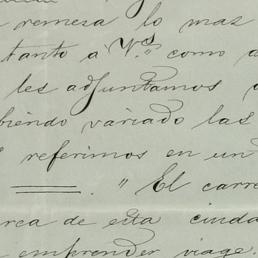 remesa lo mas
tanto a V.s como a
les adjuntamos
biendo variado las
referimos en un
. " El carre
rca de esta ciuda
emprender viage.